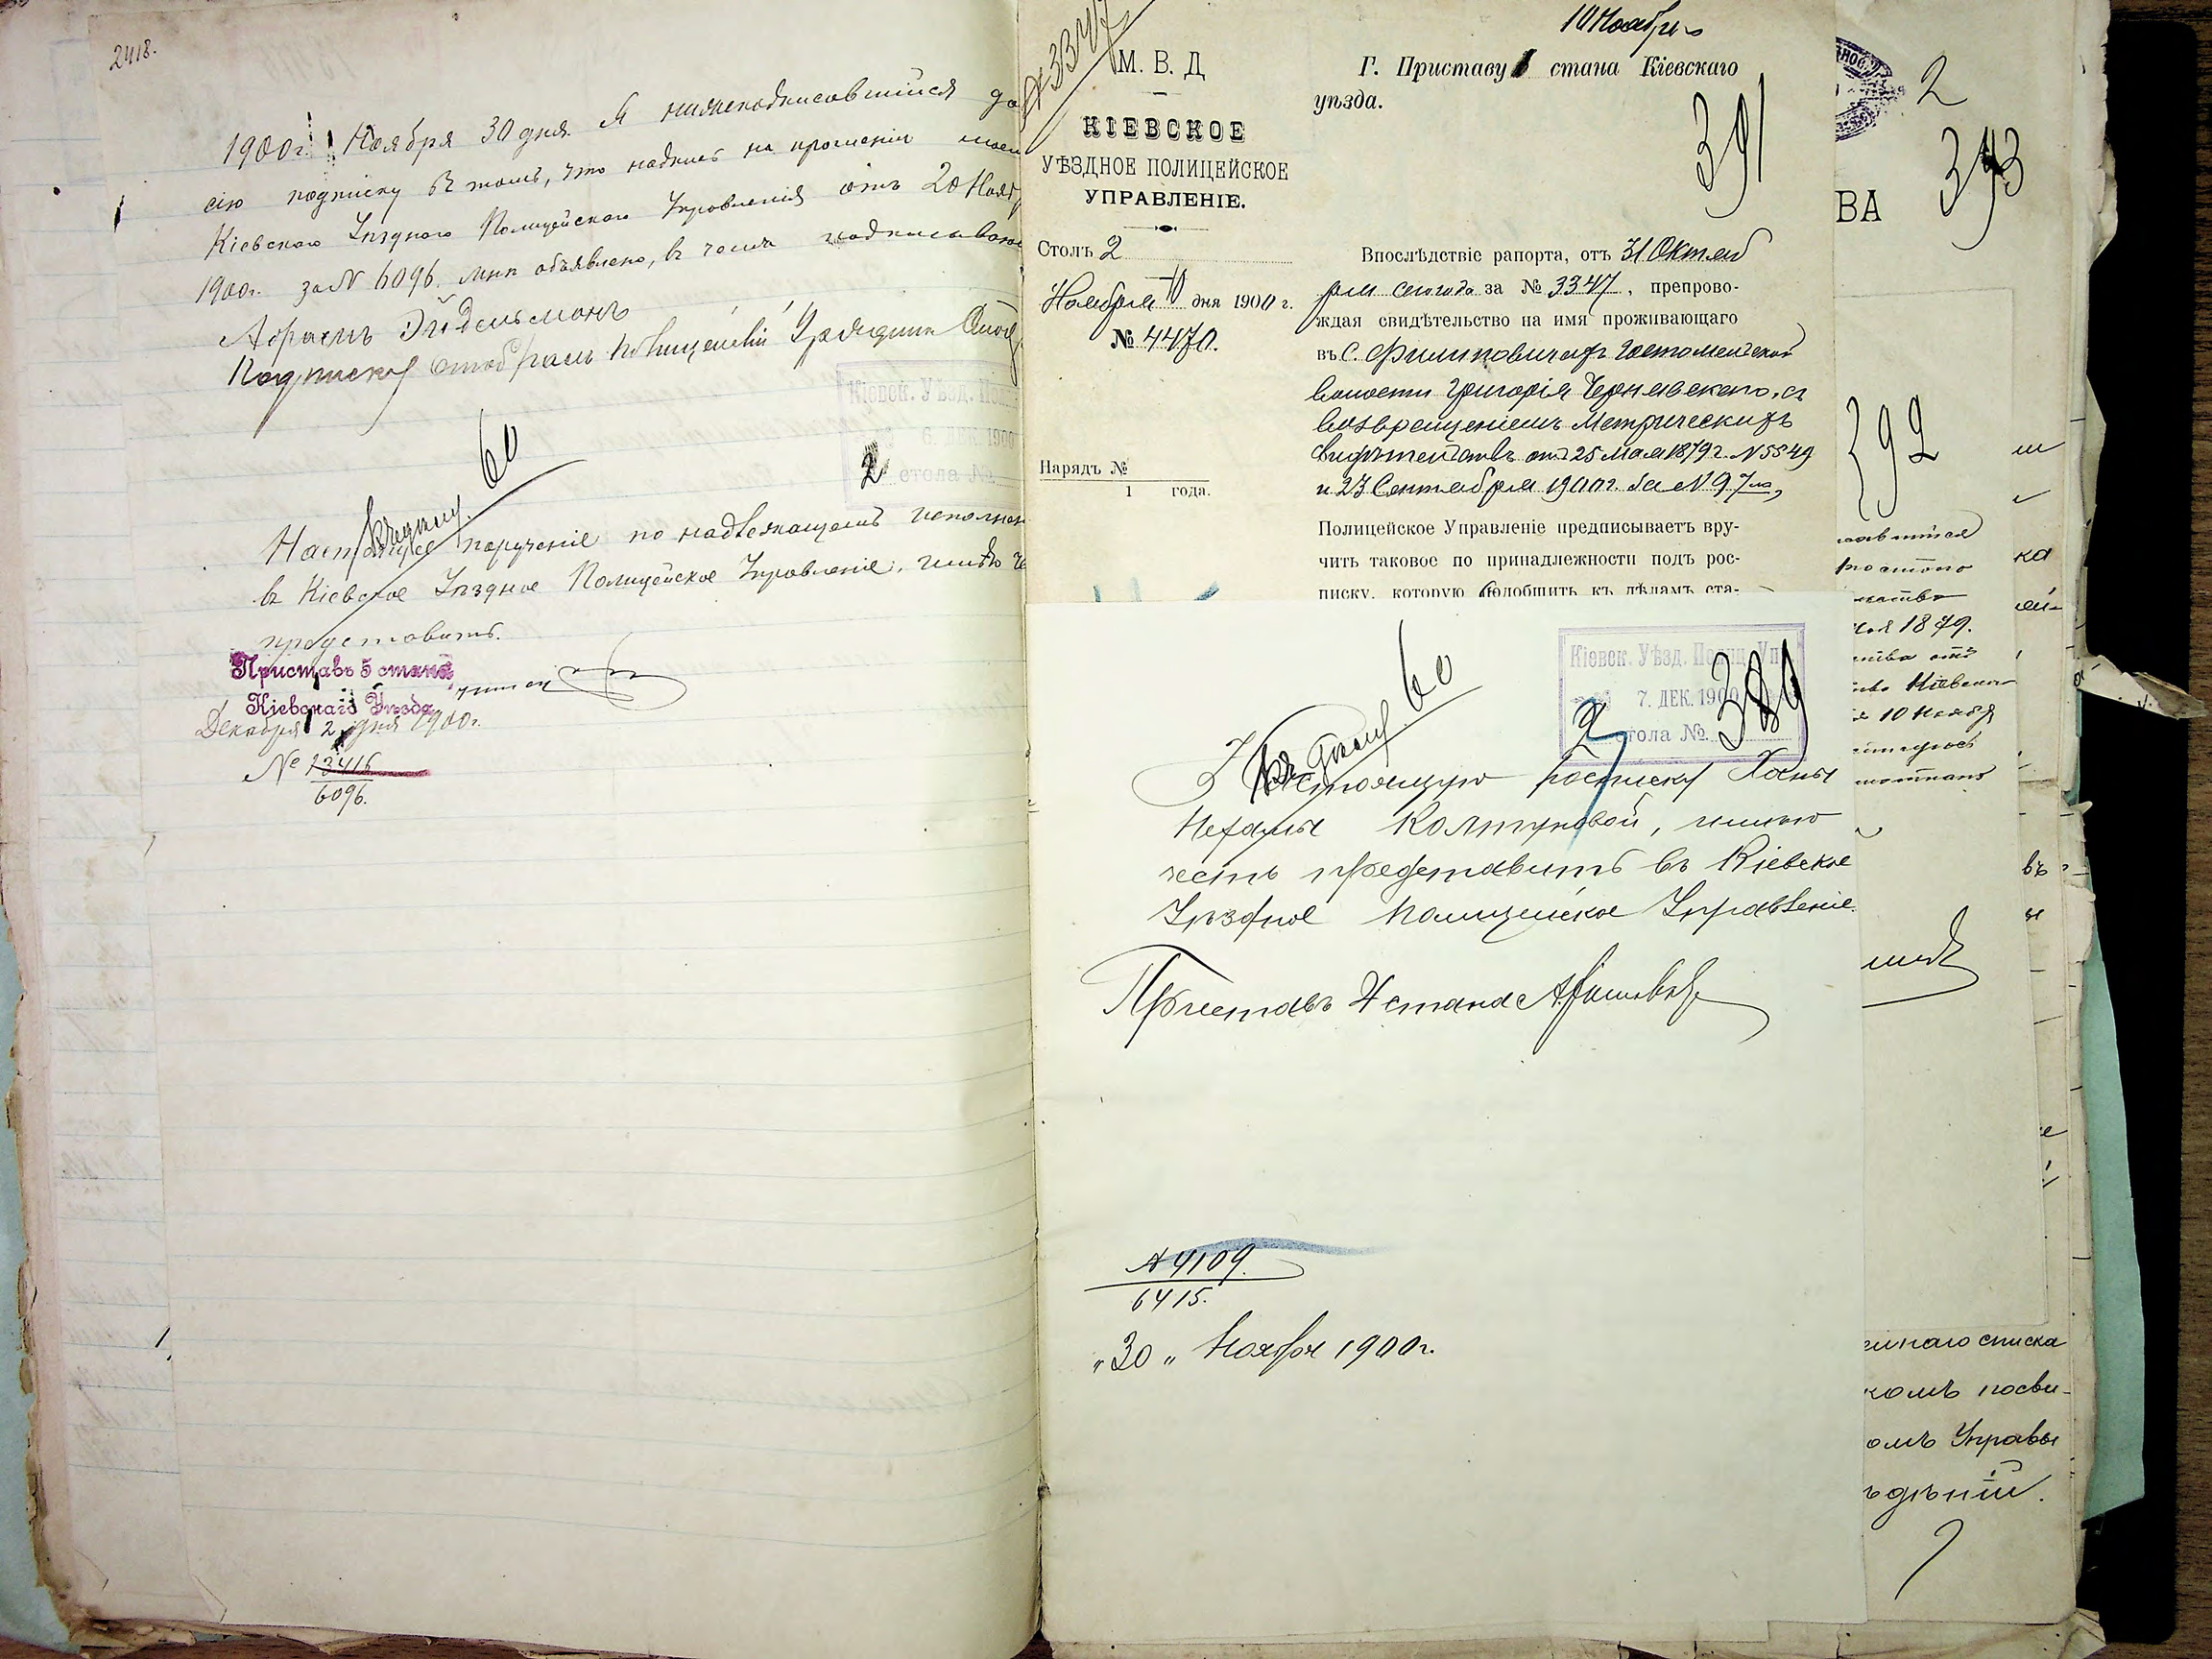 2418.
1900г. Ноября 30 дня Я нижеподписавшійся да
сію подписку въ томъ, что надпись на прошеніи моем
Кіевскаго Уѣзднаго Полицейскаго Управленія отъ 20 Нояб
1900г. за № 6096. мнѣ объявлена, въ чемъ подписываюс
Абрамъ Эйдельманъ
Подписку отобралъ Полицейскій Урядникъ
Кіевск. Уѣзд. Пол
6. ДЕК. 1900
2 стола №
60
Къ дѣлу
Настоящее порученіе по надлежащемъ исполнен
въ Кіевское Уѣздное Полицейское Управленіе, имѣю че
представить.
Приставъ 5 стана
Кіевскаго Уѣзда
Декабря 2 дня 1900г.
№ 13416
6096.
№ 3347
М. В. Д
КІЕВСКОЕ
УѢЗДНОЕ ПОЛИЦЕЙСКОЕ
УПРАВЛЕНІЕ.
Столъ 2
Ноября 10 дня 1900 г.
№ 4470.
Нарядъ №
1 года.
10 Ноября
Г. Приставу стана Кіевскаго
уѣзда.
391
Впослѣдствіе рапорта, отъ 31 Октяб
ря сего года за № 3347, препрово-
ждая свидѣтельство на имя проживающаго
въ с. Филиповичахъ Гостомельской
волости Григорія Чернявскаго, съ
возвращеніемъ Метрическихъ
свидѣтельствъ отъ 25 Мая 1879г. № 5549
и 23 Сентября 1900г. за № 97
Полицейское Управленіе предписываетъ вру-
чить таковое по принадлежности подъ рос-
писку, которую подобшить къ дѣламъ ста-
Кіевск. Уѣзд. Полиц. Упр.
7. ДЕК. 1900
2 стола №
389
60
Къ дѣлу
Настоящую росписку Ханы
Нехамы Колтуновой, имѣю
честь представить въ Кіевское
Уѣздное Полицейское Управленіе.
Приставъ 4 стана
№ 4109.
6415.
„30„ Ноября 1900г.
2
393
ВА
392
мая 1879.
10 Ноября
ка
въ
наго списка
комъ посви-
омъ Управы
ѣдѣніи.